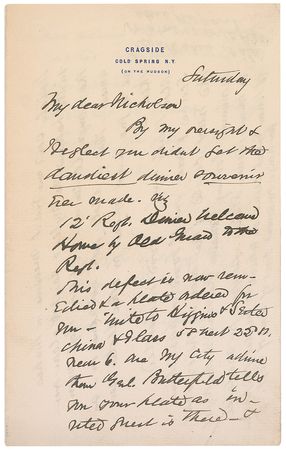 CRAGSIDE
COLD SPRING N.Y.
(ON THE HUDSON)
Saturday
My dear Nicholson
By my oversight &
neglect you didnt get the
dandiest dinner souvenir
Ever made.
12' Regt. Dinner Welcome
Home by Old Guard to the
Regt.
This defect is now rem-
edied & a plate ordered for
you - write to Higgins & Seiter
China & Glass 50 West 22d St.
near 6. Ave My City
them Genl. Butterfield tells
you your plate as in-
vited guest is there - &